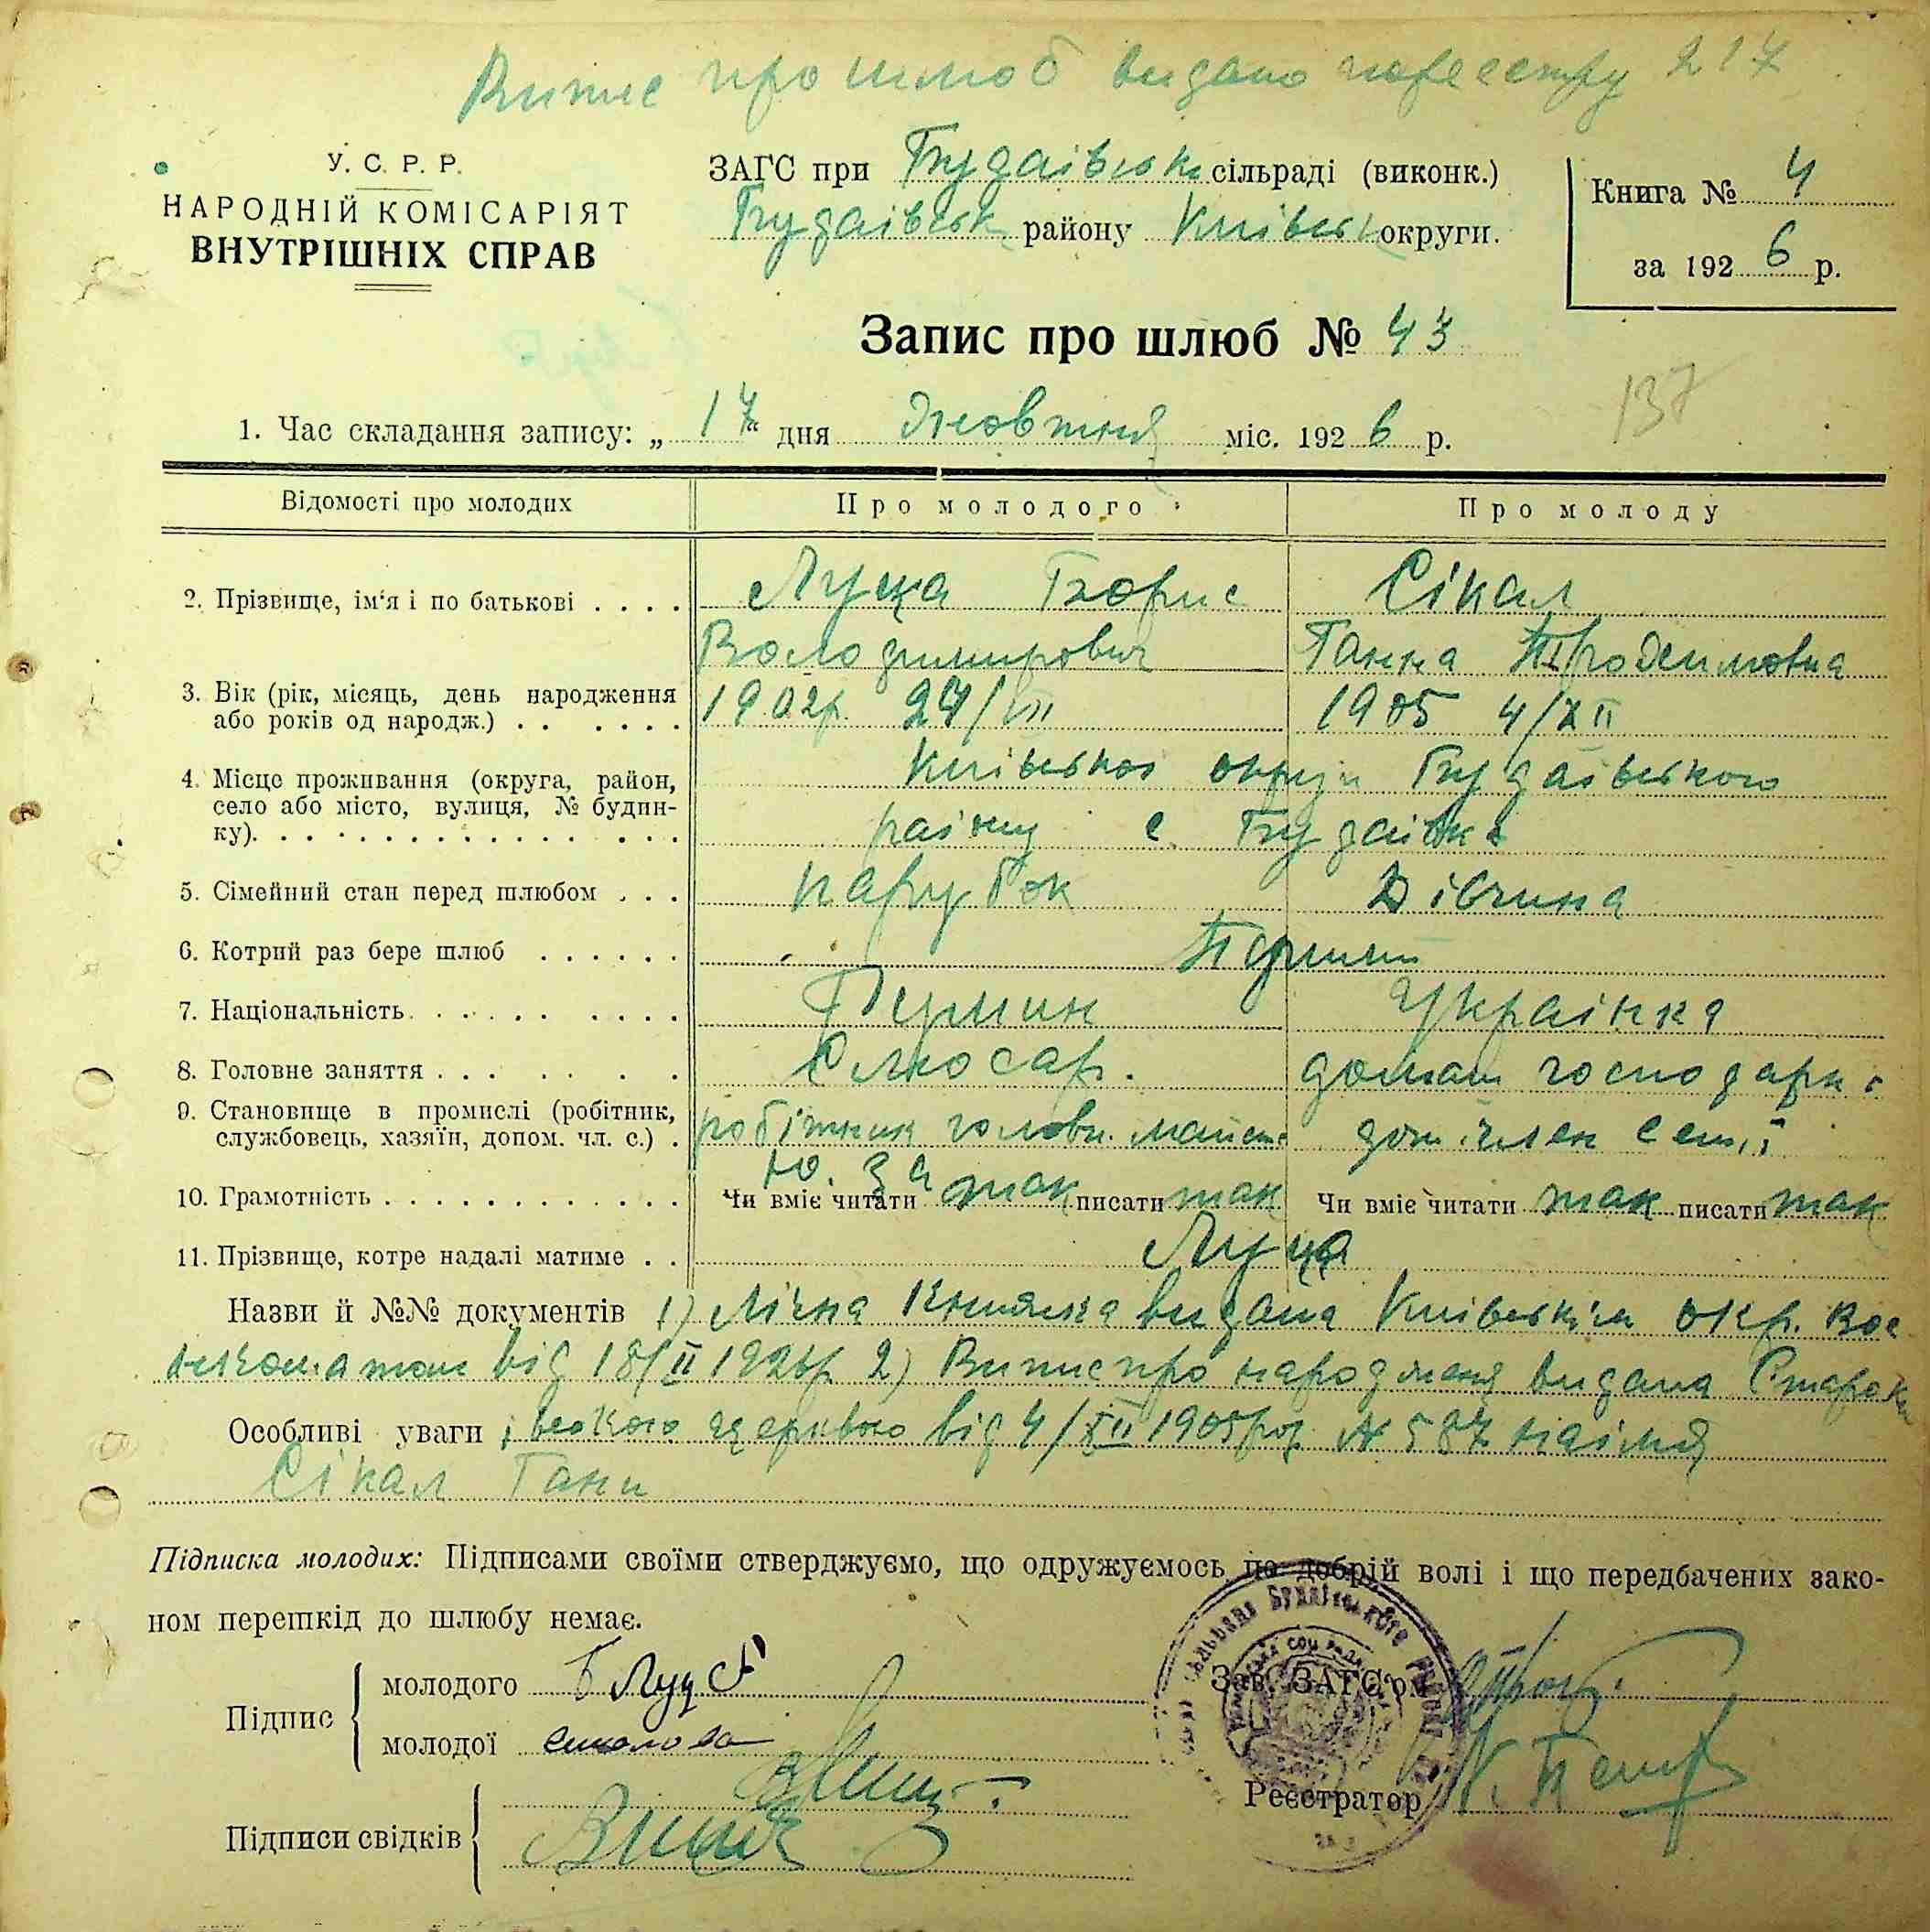 Випис про шлюб видано пореестру 217
У. С. Р. Р.
НАРОДНІЙ КОМІСАРІЯТ
ВНУТРІШНІХ СПРАВ
ЗАГС при Будаівськ сільраді (виконк.)
Будаівськ району Киівськ округи.
Книга № 4
за 1926 р.
Запис про шлюб № 43
137
1. Час складання запису: „ 17 " дня Жовтня міс. 1926 р.
Відомості про молодих Про молодого Про молоду
2. Прізвище, ім'я і по батькові . . . . Луца Борис Сікал
Володимирович Ганна
3. Вік (рік, місяць, день народження
або років од народж.) . . . . . . 1902р. 24/VII 1905 4/XII
4. Місце проживання (округа, район,
село або місто, вулиця, № будин-
ку). Киівськоі округи Будаівського
раіону с. Будаівка
5. Сімейний стан перед шлюбом . . . парубок Дівчина
6. Котрий раз бере шлюб . . . . . . Перший
7. Національність. Украінка
8. Головне заняття Слюсар. домаш господарк
9. Становище в промислі (робітник,
службовець, хазяїн, допом. чл. с.) . робітник головн. майст доп. член семіі
Ю. З а
10. Грамотність Чи вміє читати так писати так Чи вміє читати так писати так
11. Прізвище, котре надалі матиме . . Луца
Назви й №№ документів 1) Лічна Книжка видана Киівським окр. Вое
від 18/II 192 р. 2) Випис про народженя видана
Особливі уваги церквою від 4/XII 1905 р № 587 на імя
Сікал Гани
Підписка молодих: Підписами своїми стверджуємо, що одружуємось по добрій волі і що передбачених зако-
ном перешкід до шлюбу немає.
Підпис молодого Б Луца
молодої
Зав. ЗАГС'ом
Реєстратор
Підписи свідків